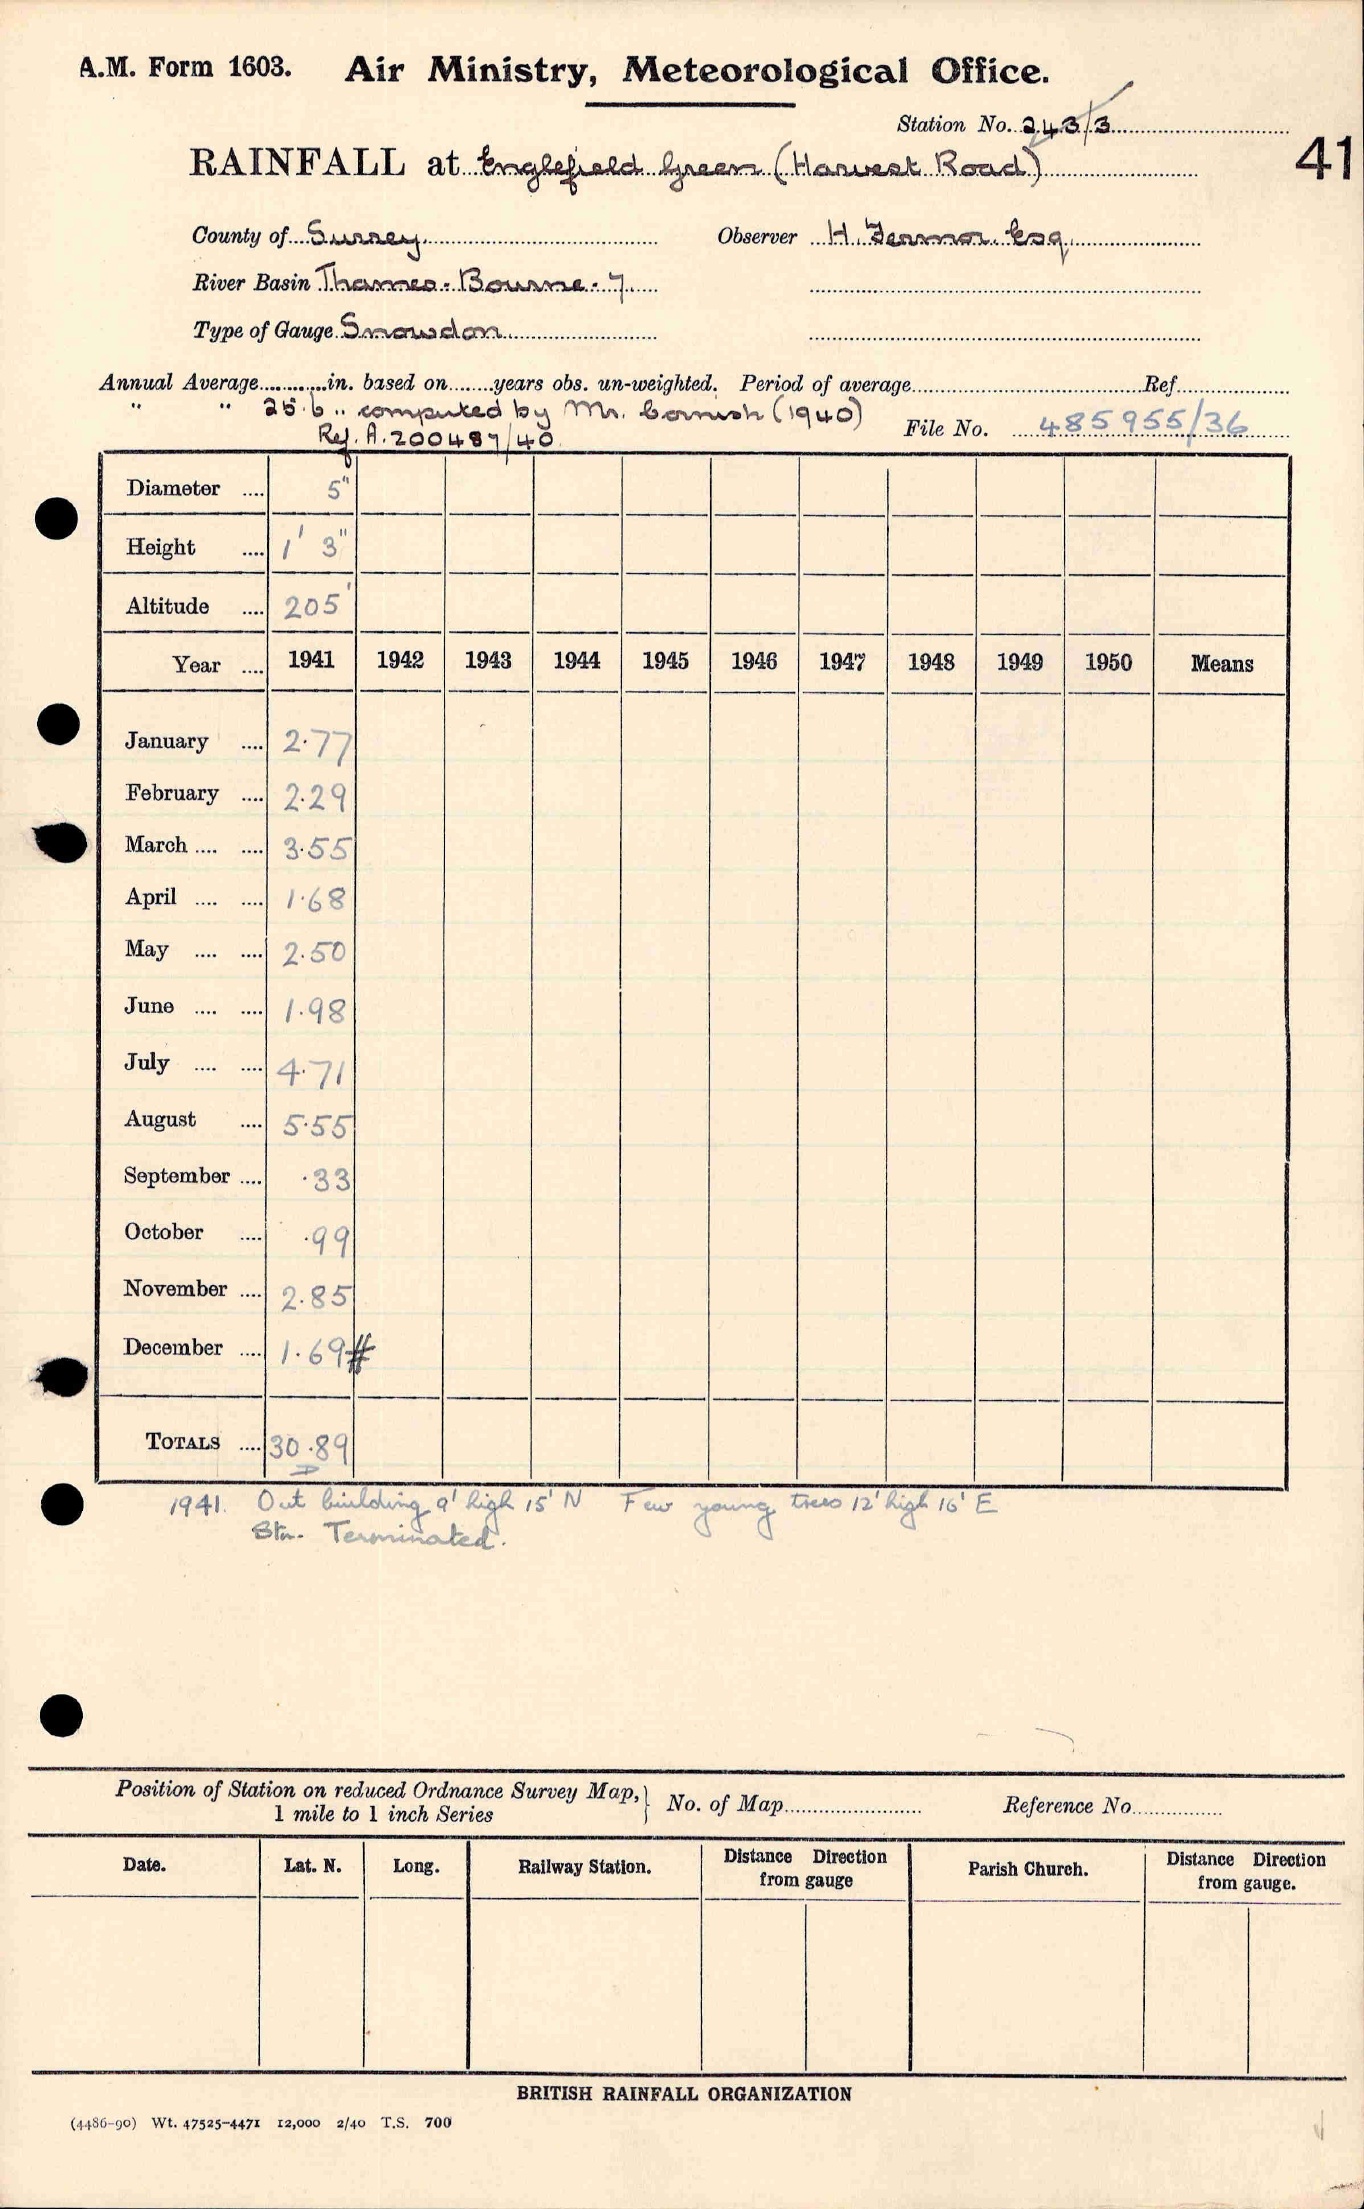 A.M. Form 1603. Air Ministry, Meteorological Office.
Station No. 243/3
41
RAINFALL at Englefield Green (Harvest Road)
County of Surrey Observer H. Fermor Esq.
River Basin Thames - Bourne - 7
Type of Gauge Snowdon
Annual Average............in. based on........years obs. un-weighted. Period of average........Ref........
" " 25.6 " computed by Mr. Cornish (1940)
Ref. A.200487/40
File No. 485955/36
Diameter .... 5"
Height .... 1' 3"
Altitude .... 205'
Year .... 1941 1942 1943 1944 1945 1946 1947 1948 1949 1950 Means
January .... 2.77
February .... 2.29
March .... .... 3.55
April .... .... 1.68
May .... .... 2.50
June .... .... 1.98
July .... .... 4.71
August .... 5.55
September .... .33
October .... .99
November .... 2.85
December .... 1.69#
TOTALS .... 30.89
1941. Out building 9' high 15' N Few young trees 12' high 16' E
Stn. Terminated.
Position of Station on reduced Ordnance Survey Map, } No. of Map........ Reference No........
1 mile to 1 inch Series
Date. Lat. N. Long. Railway Station. Distance Direction from gauge Parish Church. Distance Direction from gauge.
BRITISH RAINFALL ORGANIZATION
(4486-90) Wt. 47525-4471 12,000 2/40 T.S. 700